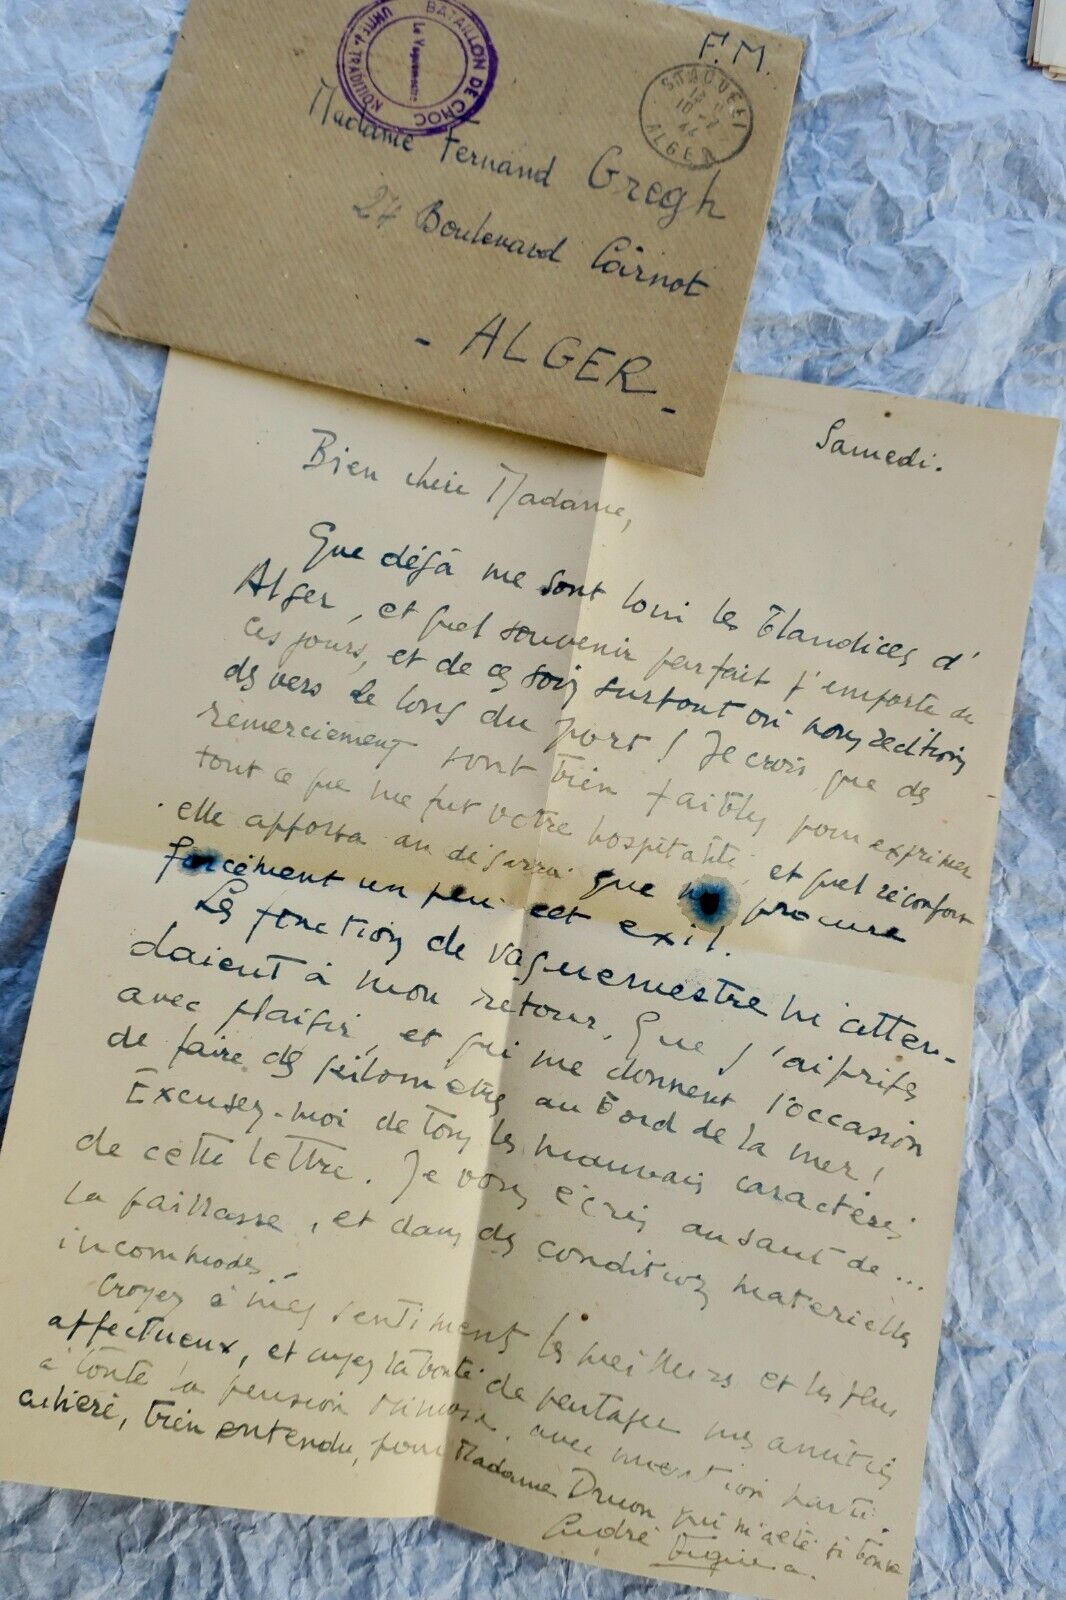 BATAILLON DE CHOC
UNITÉ DE TRADITION
Le Vaguemestre
F.M.
STAOUELI
10 -
44
ALGER
Madame Fernand Gregh
27 Boulevard Carnot
- ALGER -
Samedi.
Bien chère Madame,
Que déjà me sont loin les blandices d'
Alger, et quel souvenir parfait j'emporte de
ces jours, et de ces soirs surtout où nous récitions
des vers le long du port! Je crois que des
remerciements sont bien faibles pour exprimer
tout ce que me fut votre hospitalité, et quel réconfort
elle apporta au désarroi que me procure
forcément un peu cet exil.
Les fonctions de vaguemestre m'atten-
daient à mon retour. Que j'ai prises
avec plaisir, et qui me donnent l'occasion
de faire des kilomètres au bord de la mer!
Excusez-moi de tous les mauvais caractères
de cette lettre. Je vous écris au saut de ...
la paillasse, et dans des conditions matérielles
incommodes.
Croyez à mes sentiments les meilleurs et les plus
affectueux, et ayez la bonté de partager mes amitiés
à toute la pension, avec mention parti-
culière, bien entendu, pour Madame Druon qui m'a été si bonne
André